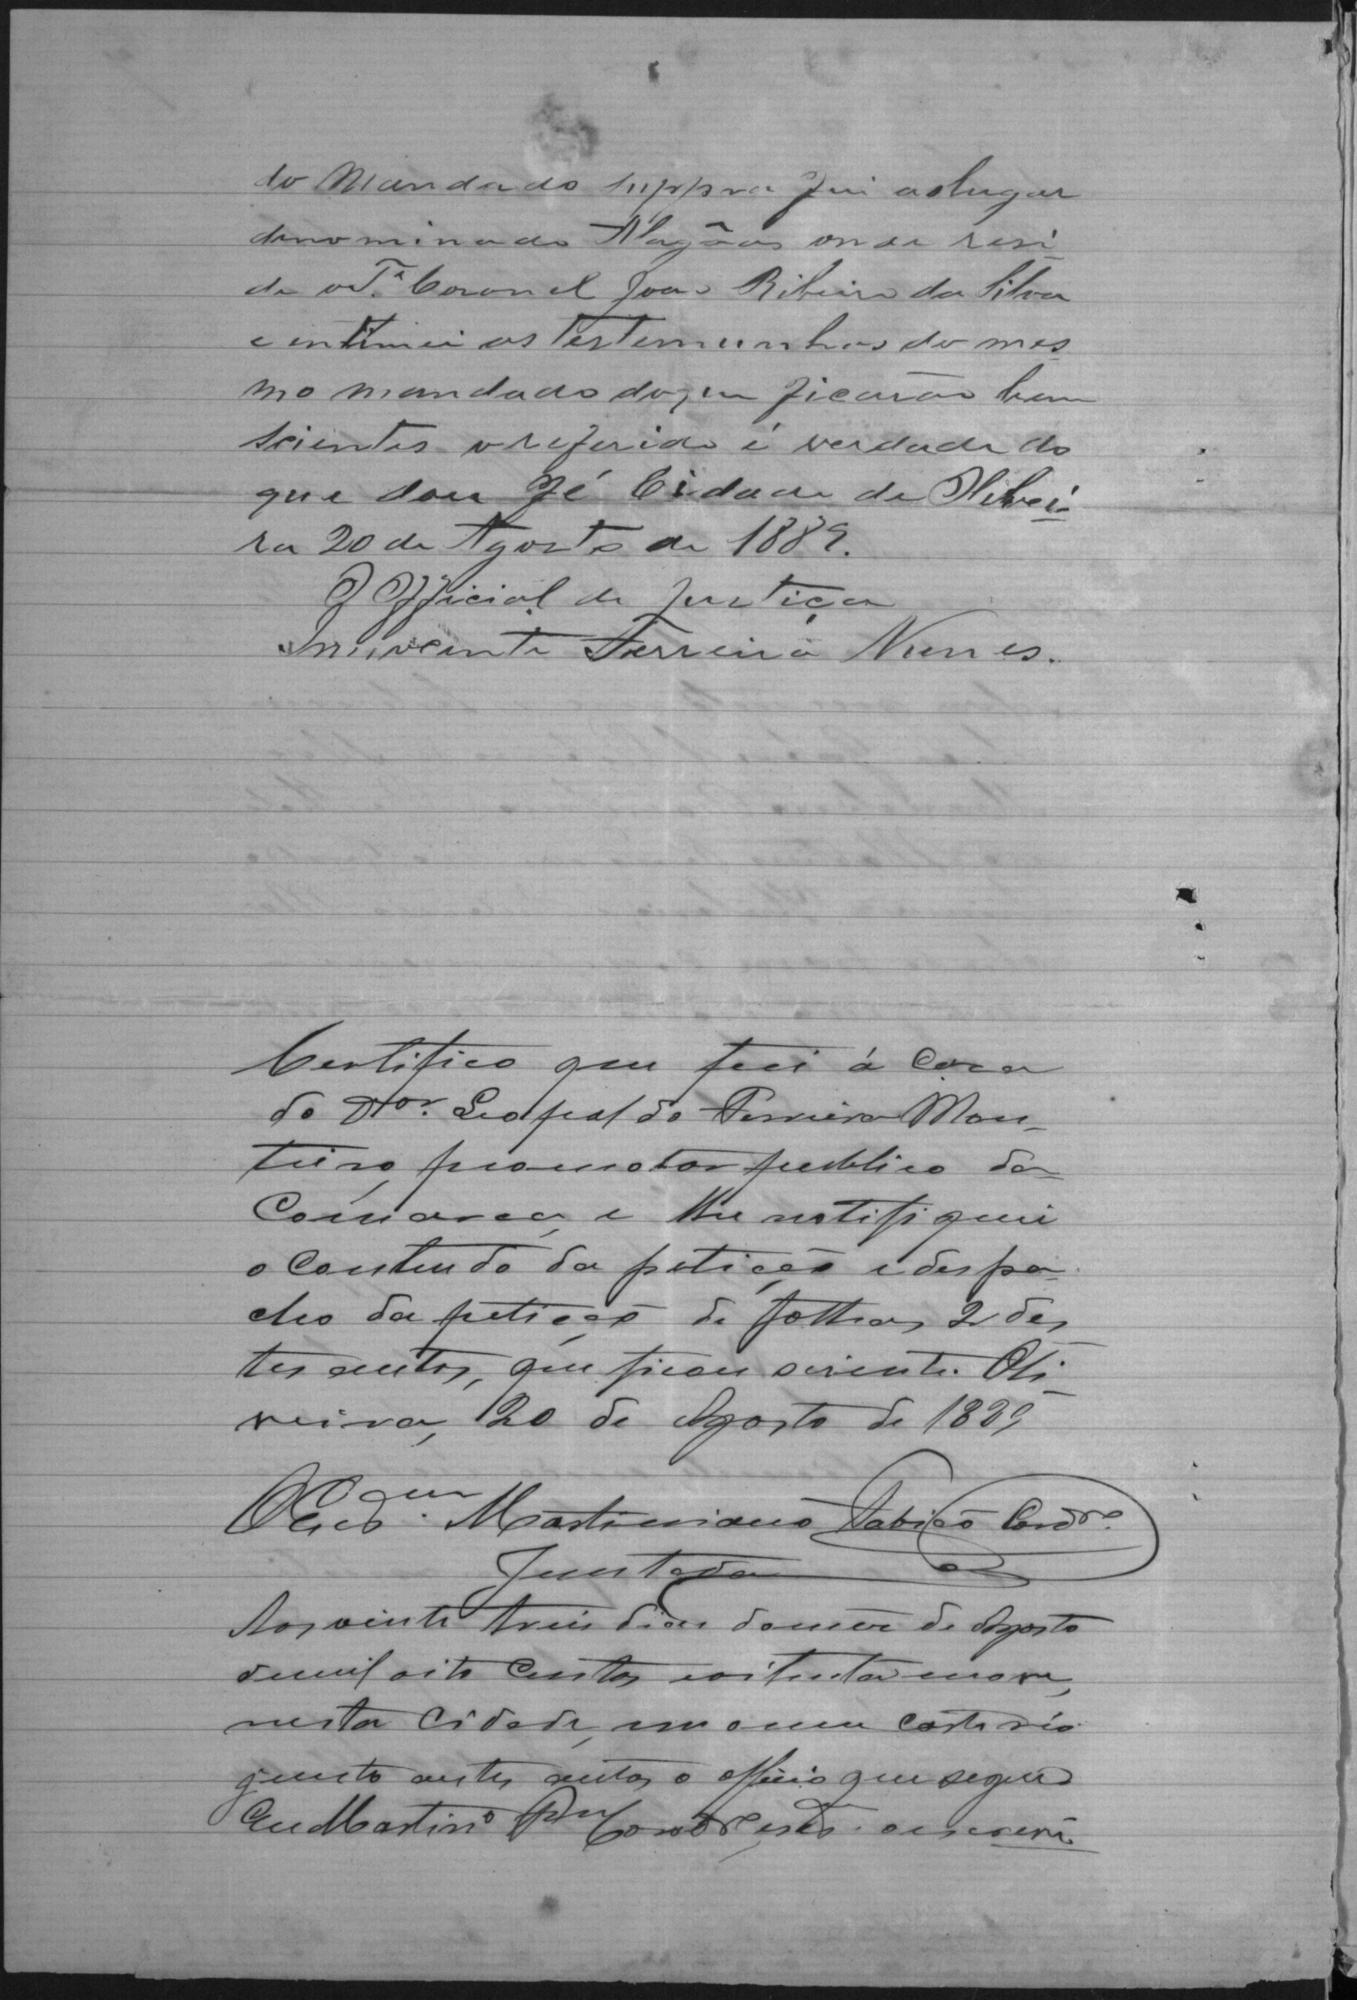 do mandado suppra fui ao lugar
denominado Alagôas onde resi
de o T.e Coronel Joao Ribeiro da Silva
e intimei as testemunhas do mes
mo mandado do que ficarão bem
scientes o referido é verdade do
que dou fé Cidade de Olivei
ra 20 de Agosto de 1889.
O Official de Justiça
Ferreira Nunes.
Certifico que fui á casa
do Dor. Leopoldo Ferreira Mon
teiro, promotor publico da
Comarca, e lhe notifiquei
o conteudo da petição e despa
cho da petição de folhas 2 des
tes autos, que ficou sciente. Oli
veira, 20 de Agosto de 1889
O Martiniano Cord.ro
Juntada
Aos vinte treis dias do mez de Agosto
de mil oito centos e oitenta nove,
nesta Cidade, em o meu cartorio
junto a estes autos o officio que segue
Eu Martin.o o escrevi.